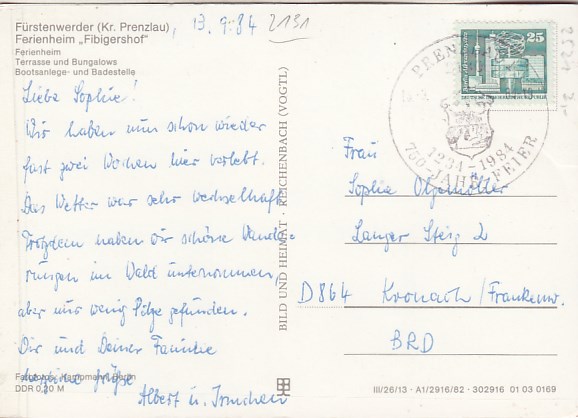 Fürstenwerder (Kr. Prenzlau), 13.9.84 2131
Ferienheim „Fibigershof"
Ferienheim
Terrasse und Bungalows
Bootsanlege- und Badestelle
Liebe Sophie!
Wir haben nun schon wieder
fast zwei Wochen hier verlebt.
Das Wetter war sehr wechselhaft
Trotzdem haben wir schöne Wande-
rungen im Wald unternommen,
aber nur wenig Pilze gefunden.
Dir und Deiner Familie
herzliche Grüße
Albert u. Irmchen
DDR 0,20 M
BILD UND HEIMAT · REICHENBACH (VOGTL)
25
PRENZLAU
1234-1984
750-JAHR-FEIER
Frau
Sophie
Langer Steig 2
D 864 Kronach/Frankenw.
BRD
III/26/13 - A1/2916/82 - 302916 01 03 0169